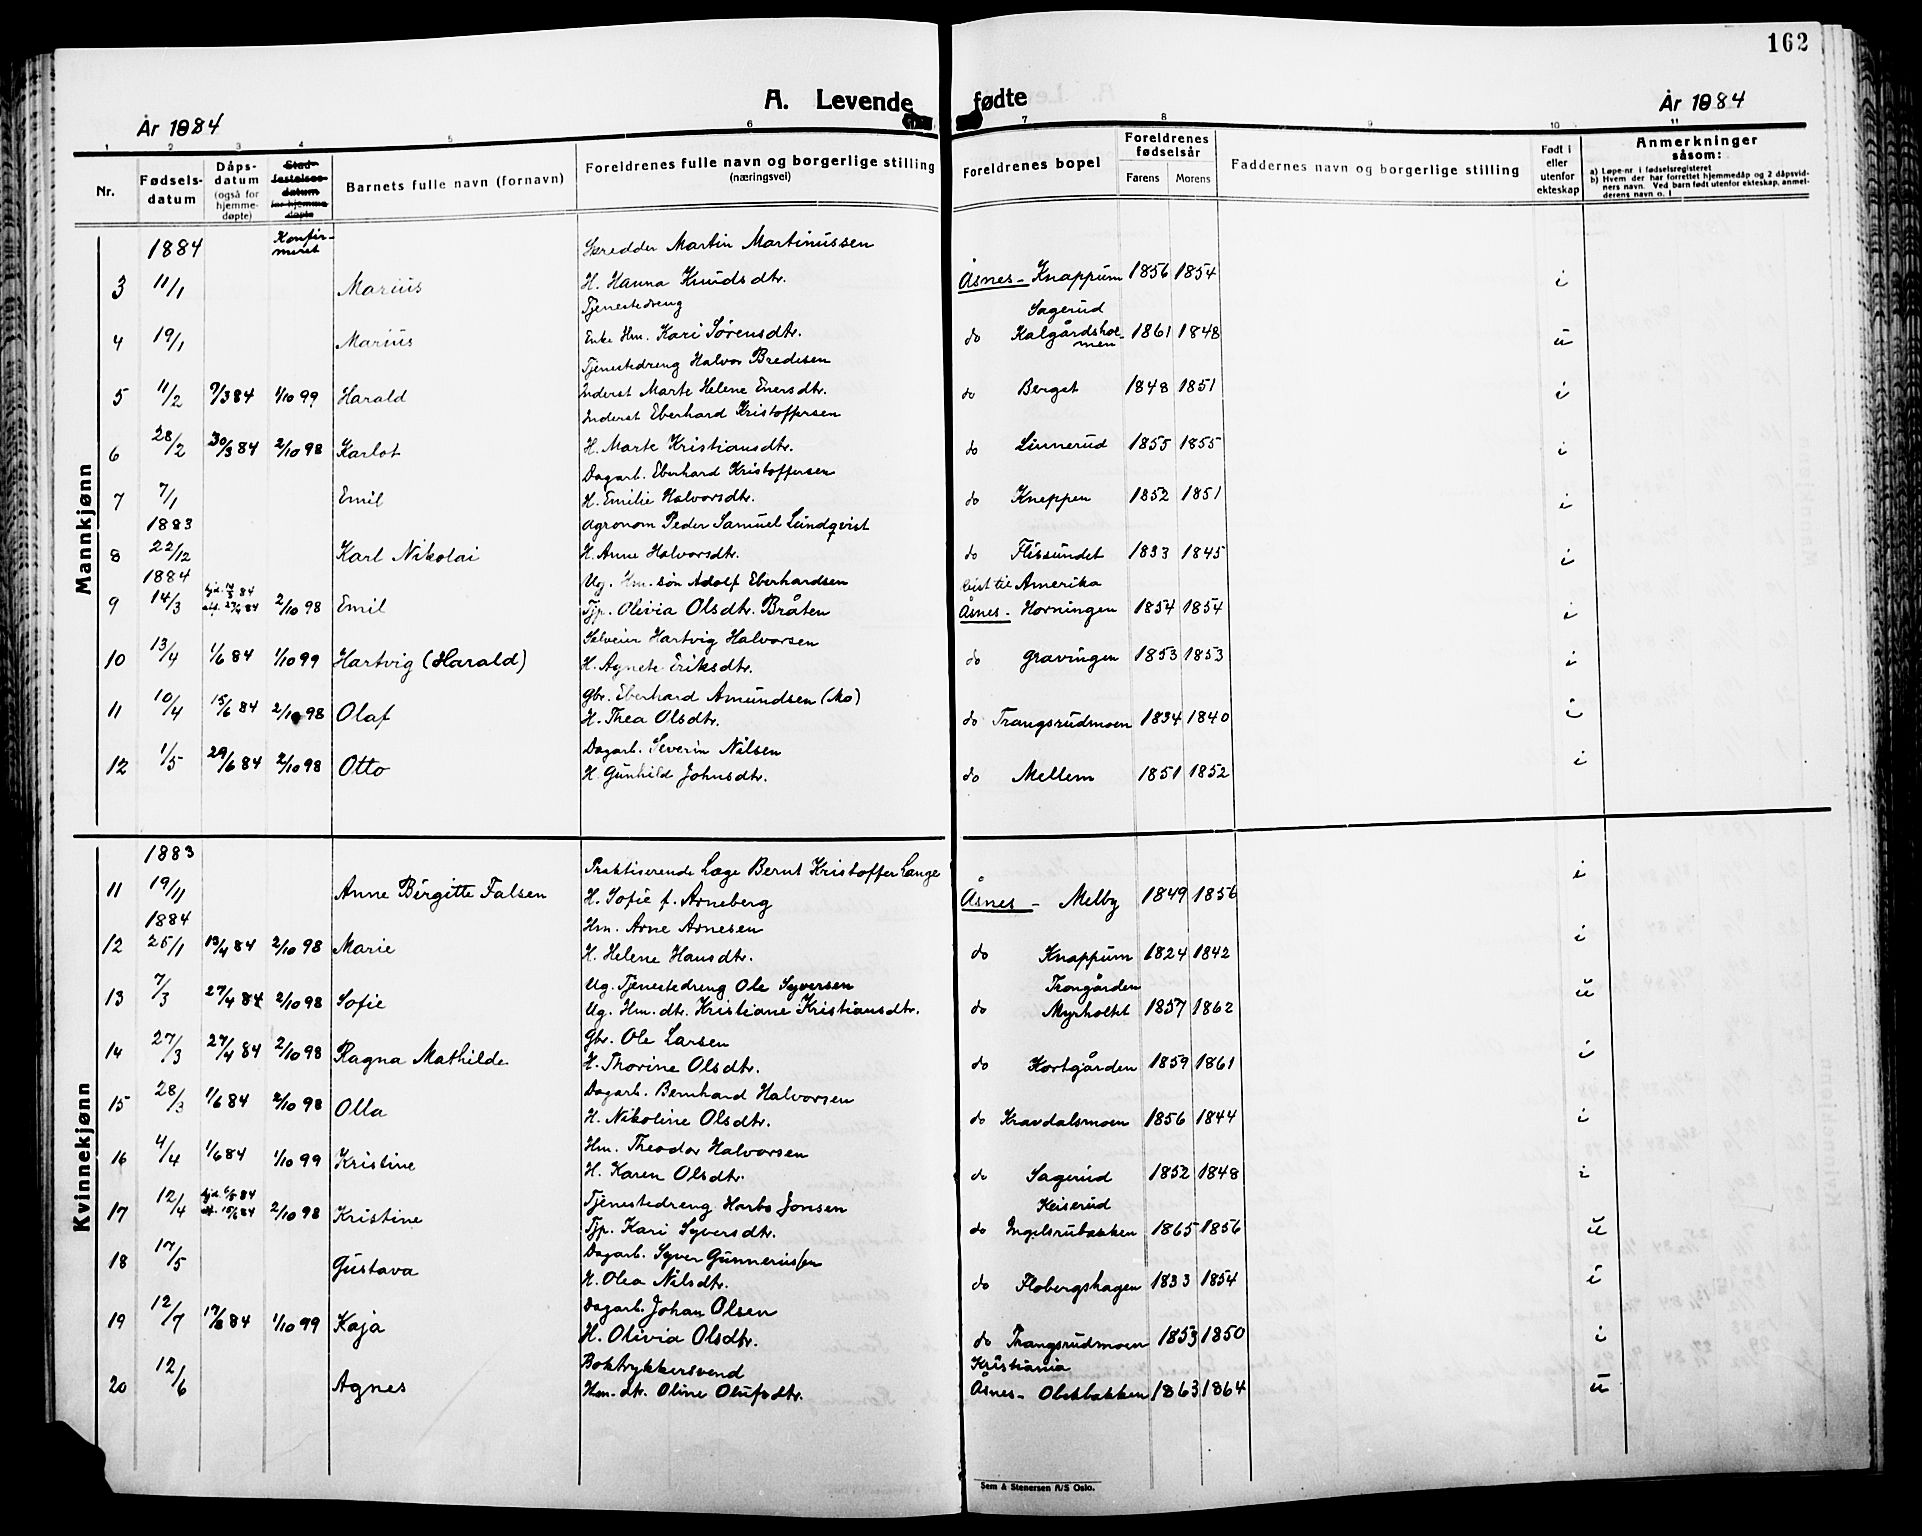 162
A. Levende fødte
År 1884
År 1884
1 2 3 4 5 6 7 8 9 10 11
Nr. Fødsels-datum Dåps-datum (også for hjemme-døpte) Stad-festelses-datum for hjemme-døpte Barnets fulle navn (fornavn) Foreldrenes fulle navn og borgerlige stilling (næringsvei) Foreldrenes bopel Foreldrenes fødselsår Farens Morens Faddernes navn og borgerlige stilling Født i eller utenfor ekteskap Anmerkninger såsom:
a) Løpe-nr. i fødselsregisteret
b) Hvem der har forrettet hjemmedåp og 2 dåpsvid-
ners navn. Ved barn født utenfor ekteskap, anmel-
derens navn o. l.
Mannkjønn
1884 Konfir-meret Skredder Martin Martinussen
3 11/1 Marius H. Hanna Knudsdtr. Åsnes - Knappum 1856 1854 i
Tjenestedreng Sagerud
4 19/1 Marius Enke Hm. Kari Sørensdtr. do Kalgårdshol-men 1861 1848 u
Tjenestedreng Halvor Bredesen
5 11/2 9/3 84 1/10 99 Harald Inderst Marte Helene Enersdtr. do Berget 1848 1851 i
Inderst Eberhard Kristoffersen
6 28/2 30/3 84 2/10 98 Karlot H. Marte Kristiansdtr. do Linnerud 1855 1855 i
Dagarb. Eberhard Kristoffersen
7 7/1 Emil H. Emilie Halvorsdtr. do Kneppen 1852 1851 i
1883 Agronom Peder Samuel Lundqvist
8 22/12 Karl Nikolai H. Anne Halvorsdtr. do Flissundet 1833 1845 i
1884 hjd. 14/3 84 Ug. Hm. søn Adolf Eberhardsen reist til Amerika
9 14/3 27/4 84 2/10 98 Emil Tjp. Olivia Olsdtr. Bråten Åsnes - Horningen 1854 1854 i
Selveier Hartvig Halvorsen
10 13/4 1/6 84 1/10 99 Hartvig (Harald) H. Agnete Eriksdtr. do Gravingen 1853 1853 i
Gbr. Eberhard Amundsen (Mo)
11 10/4 15/6 84 2/10 98 Olaf H. Thea Olsdtr. do Trangsrudmoen 1834 1840 i
Dagarb. Severin Nilsen
12 1/5 29/6 84 2/10 98 Otto H. Gunhild Johnsdtr. do Mellem 1851 1852 i
Kvinnekjønn
1883 Praktiserende Læge Bernt Kristoffer Lange
11 19/11 Anne Birgitte Falsen H. Sofie f. Arneberg Åsnes - Melby 1849 1856 i
1884 Hm. Arne Arnesen
12 25/1 13/4 84 2/10 98 Marie H. Helene Hansdtr. do Knappum 1824 1842 i
Ug. Tjenestedreng Ole Syversen Trongården
13 7/3 27/4 84 2/10 98 Sofie Ug. Hm. dtr. Kristiane Kristiansdtr. do Myrholtet 1857 1862 u
Gbr. Ole Larsen
14 27/3 27/4 84 2/10 98 Ragna Mathilde H. Thorine Olsdtr. do Kortgården 1859 1861 i
Dagarb. Bernhard Halvorsen
15 28/3 1/6 84 2/10 98 Olla H. Nikoline Olsdtr. do Kravdalsmoen 1856 1844 i
Hm. Theodor Halvorsen
16 4/4 1/6 84 1/10 99 Kristine H. Karen Olsdtr. do Sagerud 1852 1848 i
hjd. 6/5 84 Tjenestedreng Harbo Jonsen Keiserud
17 12/4 15/6 84 2/10 98 Kristine Tjp. Kari Syversdtr. do Ingelsrubakken 1865 1856 u
Dagarb. Syver Gunnerussen
18 17/5 Gustava H. Olea Nilsdtr. do Flobergshagen 1833 1854 i
Dagarb. Johan Olsen
19 12/7 17/8 84 1/10 99 Kaja H. Olivia Olsdtr. do Trangsrudmoen 1853 1850 i
Boktrykkersvend Kristiania
20 12/6 Agnes Hm. dtr. Oline Olufsdtr. Åsnes - Obekbakken 1863 1864 u
Sem & Stenersen A/S Oslo.